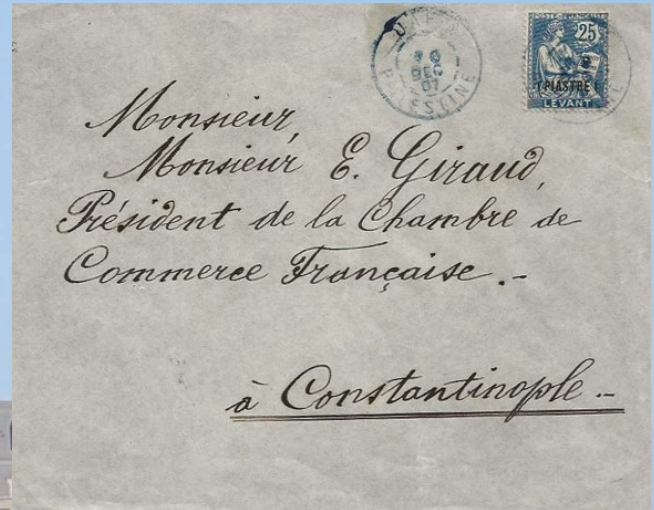 JAFFA
DEC
07
PALESTINE
POSTE FRANÇAISE
25
1 PIASTRE 1
LEVANT
Monsieur,
Monsieur E. Giraud,
Président de la Chambre de
Commerce Française.-
à Constantinople.-